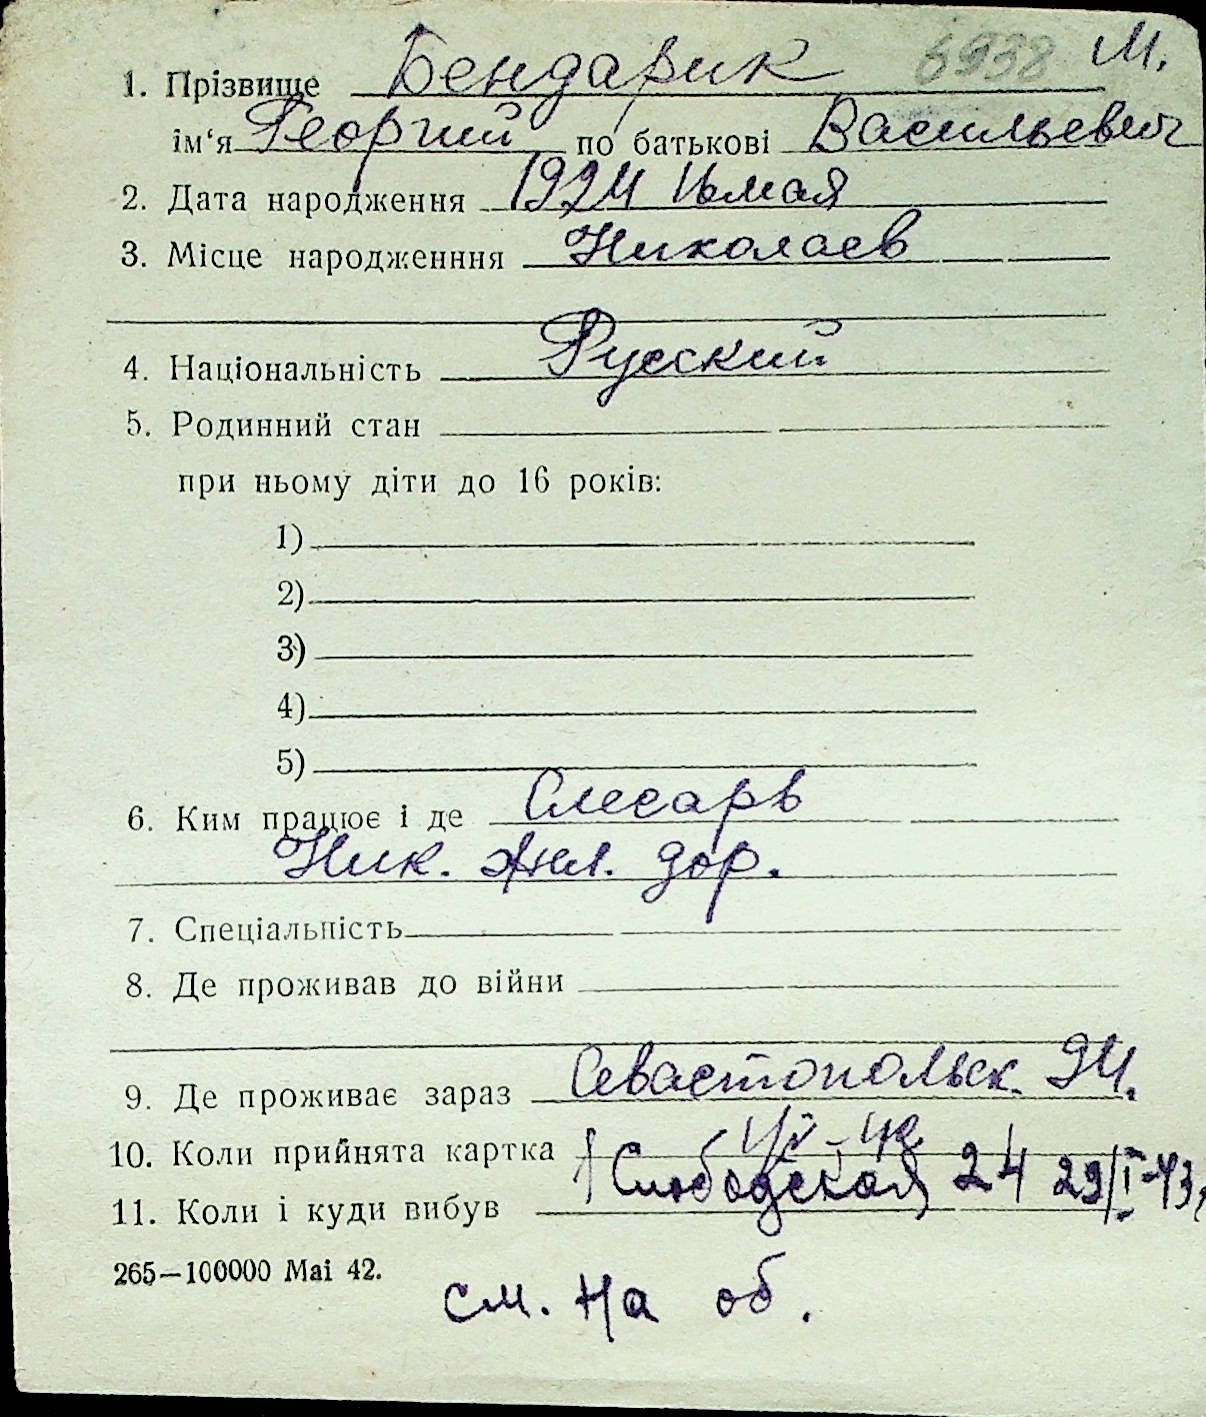 6938 М.
1. Прізвище Бендарик
ім‘я Георгий по батькові Васильевич
2. Дата народження 1924 16 мая
3. Місце народженння Николаев
4. Національність Русский
5. Родинний стан
при ньому діти до 16 років:
1)
2)
3)
4)
5)
6. Ким працює і де Слесарь
Ник. жел. дор.
7. Спеціальність
8. Де проживав до війни
9. Де проживає зараз Севастопольск 94.
10. Коли прийнята картка
11. Коли і куди вибув Слободская 24 29/I-43,
265—100000 Mai 42.
см. на об.